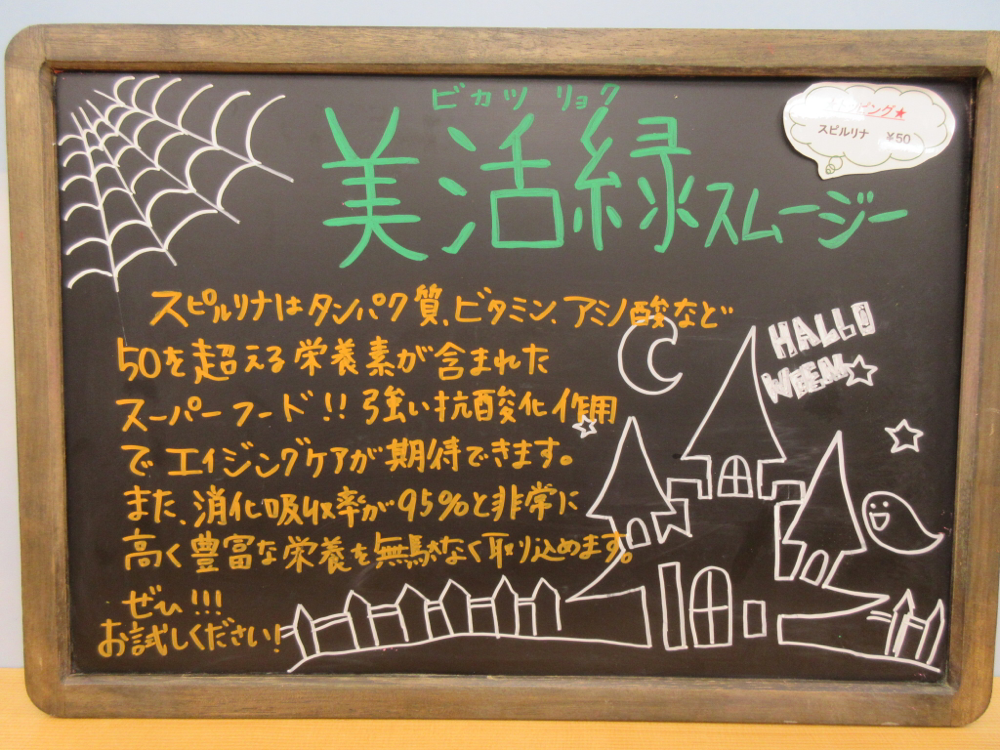 ビカツ リョク
美活緑スムージー
ピング★
スピルリナ ¥50
スピルリナはタンパク質、ビタミン、アミノ酸など
50を超える栄養素が含まれた
スーパーフード!! 強い抗酸化作用
でエイジングケアが期待できます。
また、消化吸収率が95%と非常に
高く豊富な栄養を無駄なく取り込めます。
ぜひ!!!
お試しください!
HALLO
WEEN